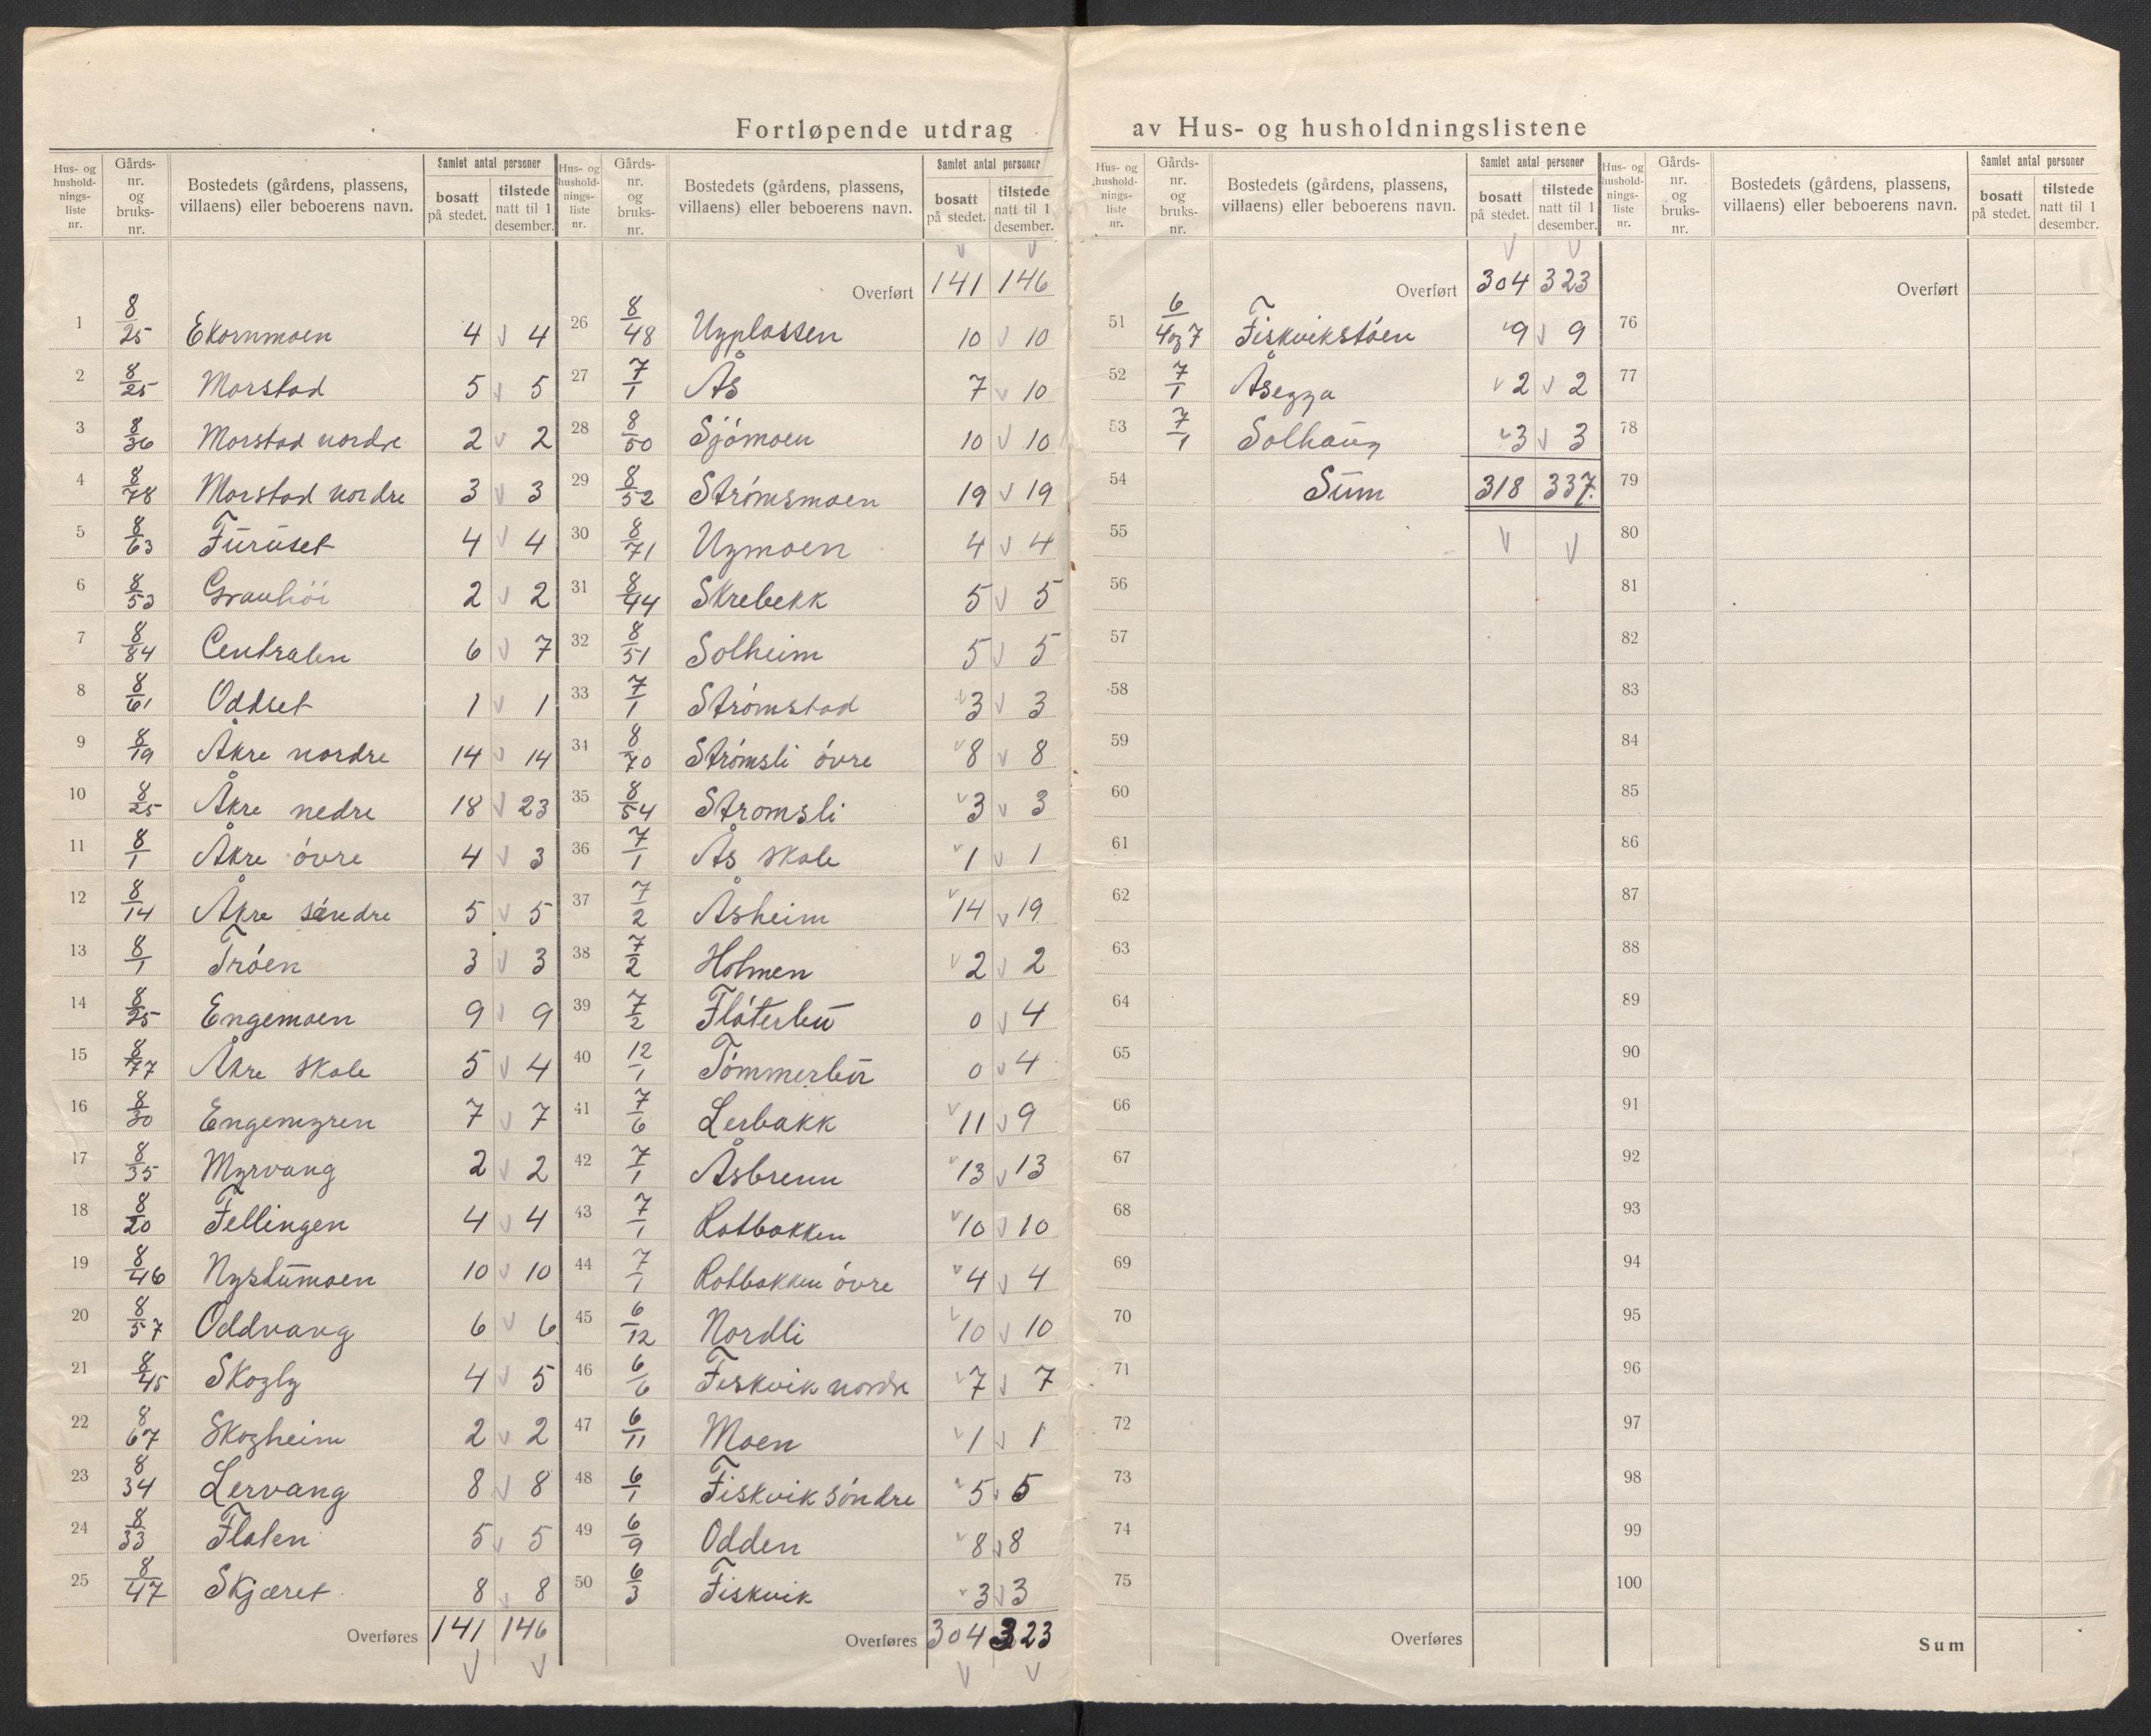 Fortløpende utdrag av Hus- og husholdningslistene
Hus- og hushold- nings- liste nr. | Gårds- nr. og bruks- nr. | Bostedets (gårdens, plassens, villaens) eller beboerens navn. | Samlet antal personer bosatt på stedet. | tilstede natt til 1 desember.
1 8/25 Ekornmoen 4 4
2 8/25 Morstad 5 5
3 8/36 Morstad nordre 2 2
4 8/78 Morstad nordre 3 3
5 8/63 Furuset 4 4
6 8/53 Granhöi 2 2
7 8/84 Centralen 6 7
8 8/61 Oddset 1 1
9 8/19 Åkre nordre 14 14
10 8/25 Åkre nedre 18 23
11 8/1 Åkre óvre 4 3
12 8/14 Åkre söndre 5 5
13 8/1 Tróen 3 3
14 8/25 Engemoen 9 9
15 8/77 Åkre skole 5 4
16 8/30 Engemyren 7 7
17 8/35 Myrvang 2 2
18 8/20 Fellingen 4 4
19 8/46 Nystumoen 10 10
20 8/57 Oddvang 6 6
21 8/45 Skogly 4 5
22 8/67 Skogheim 2 2
23 8/34 Lervang 8 8
24 8/33 Flaten 5 5
25 8/47 Skjæret 8 8
Overføres 141 146
Hus- og hushold- nings- liste nr. | Gårds- nr. og bruks- nr. | Bostedets (gårdens, plassens, villaens) eller beboerens navn. | Samlet antal personer bosatt på stedet. | tilstede natt til 1 desember.
Overført 141 146
26 8/48 Ugplassen 10 10
27 7/1 Ås 7 10
28 8/50 Sjómoen 10 10
29 8/52 Strómsmoen 19 19
30 8/71 Ugmoen 4 4
31 8/44 Skrebekk 5 5
32 8/51 Solheim 5 5
33 7/1 Strómstad 3 3
34 8/70 Strómsli óvre 8 8
35 8/54 Stromsli 3 3
36 7/1 Ås skole 1 1
37 7/2 Åsheim 14 19
38 7/2 Holmen 2 2
39 7/2 Flóterbu 0 4
40 12/1 Tómmerbu 0 4
41 7/6 Lerbakk 11 9
42 7/1 Åsbrenn 13 13
43 7/1 Rotbakken 10 10
44 7/1 Rotbakken óvre 4 4
45 6/12 Nordli 10 10
46 6/6 Fiskvik nordre 7 7
47 6/11 Moen 1 1
48 6/1 Fiskvik sóndre 5 5
49 6/9 Odden 8 8
50 6/3 Fiskvik 3 3
Overføres 304 323
Hus- og hushold- nings- liste nr. | Gårds- nr. og bruks- nr. | Bostedets (gårdens, plassens, villaens) eller beboerens navn. | Samlet antal personer bosatt på stedet. | tilstede natt til 1 desember.
Overført 304 323
51 6/4og7 Fiskvikstóen 9 9
52 7/1 Åsegga 2 2
53 7/1 Solhaug 3 3
54 Sum 318 337.
55
56
57
58
59
60
61
62
63
64
65
66
67
68
69
70
71
72
73
74
75
Overføres
Hus- og hushold- nings- liste nr. | Gårds- nr. og bruks- nr. | Bostedets (gårdens, plassens, villaens) eller beboerens navn. | Samlet antal personer bosatt på stedet. | tilstede natt til 1 desember.
Overført
76
77
78
79
80
81
82
83
84
85
86
87
88
89
90
91
92
93
94
95
96
97
98
99
100
Sum